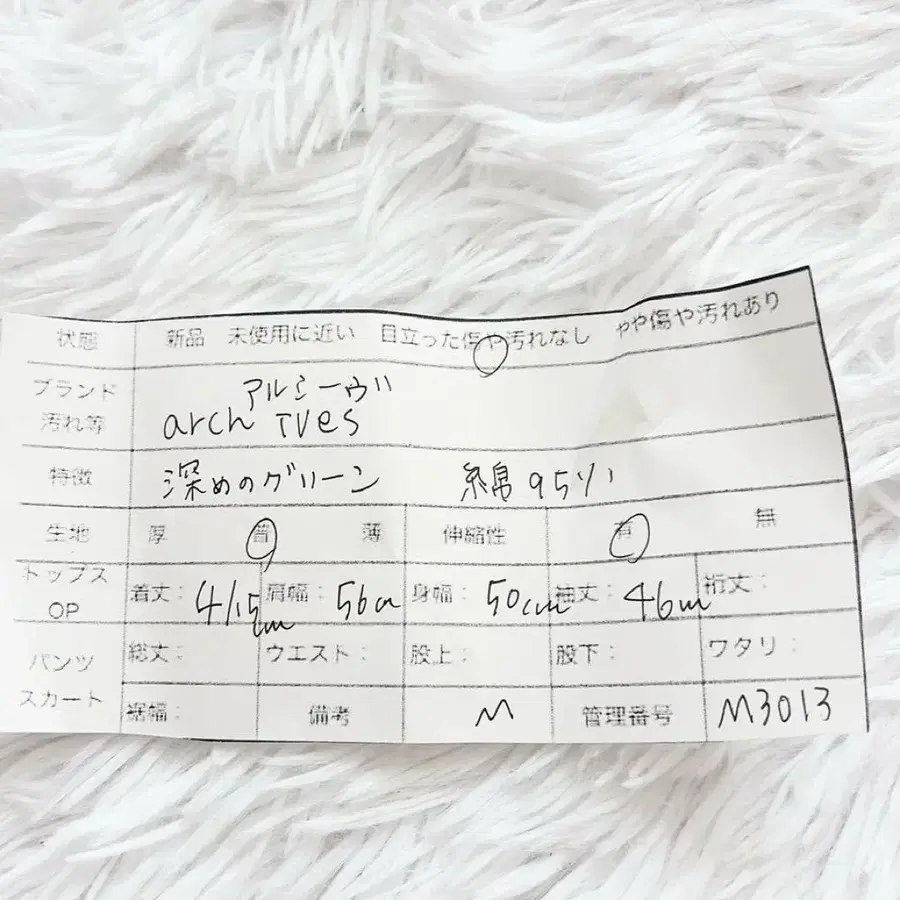 状態 新品 未使用に近い 目立った傷や汚れなし やや傷や汚れあり
ブランド アルシーヴ
汚れ等 arch IVes
特徴 深めのグリーン 綿95%
生地 厚 普 薄 伸縮性 有 無
トップス OP 着丈: 肩幅: 56cm 身幅: 50cm 袖丈: 46cm 裄丈:
パンツ 総丈: ウエスト: 股上: 股下: ワタリ:
スカート 裾幅: 備考 M 管理番号 M3013